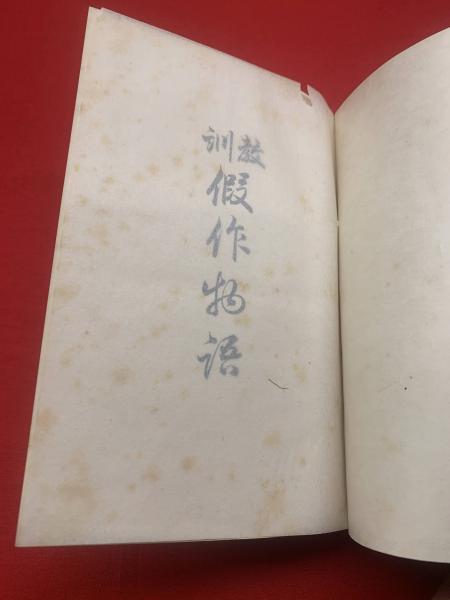 教訓
假作物語